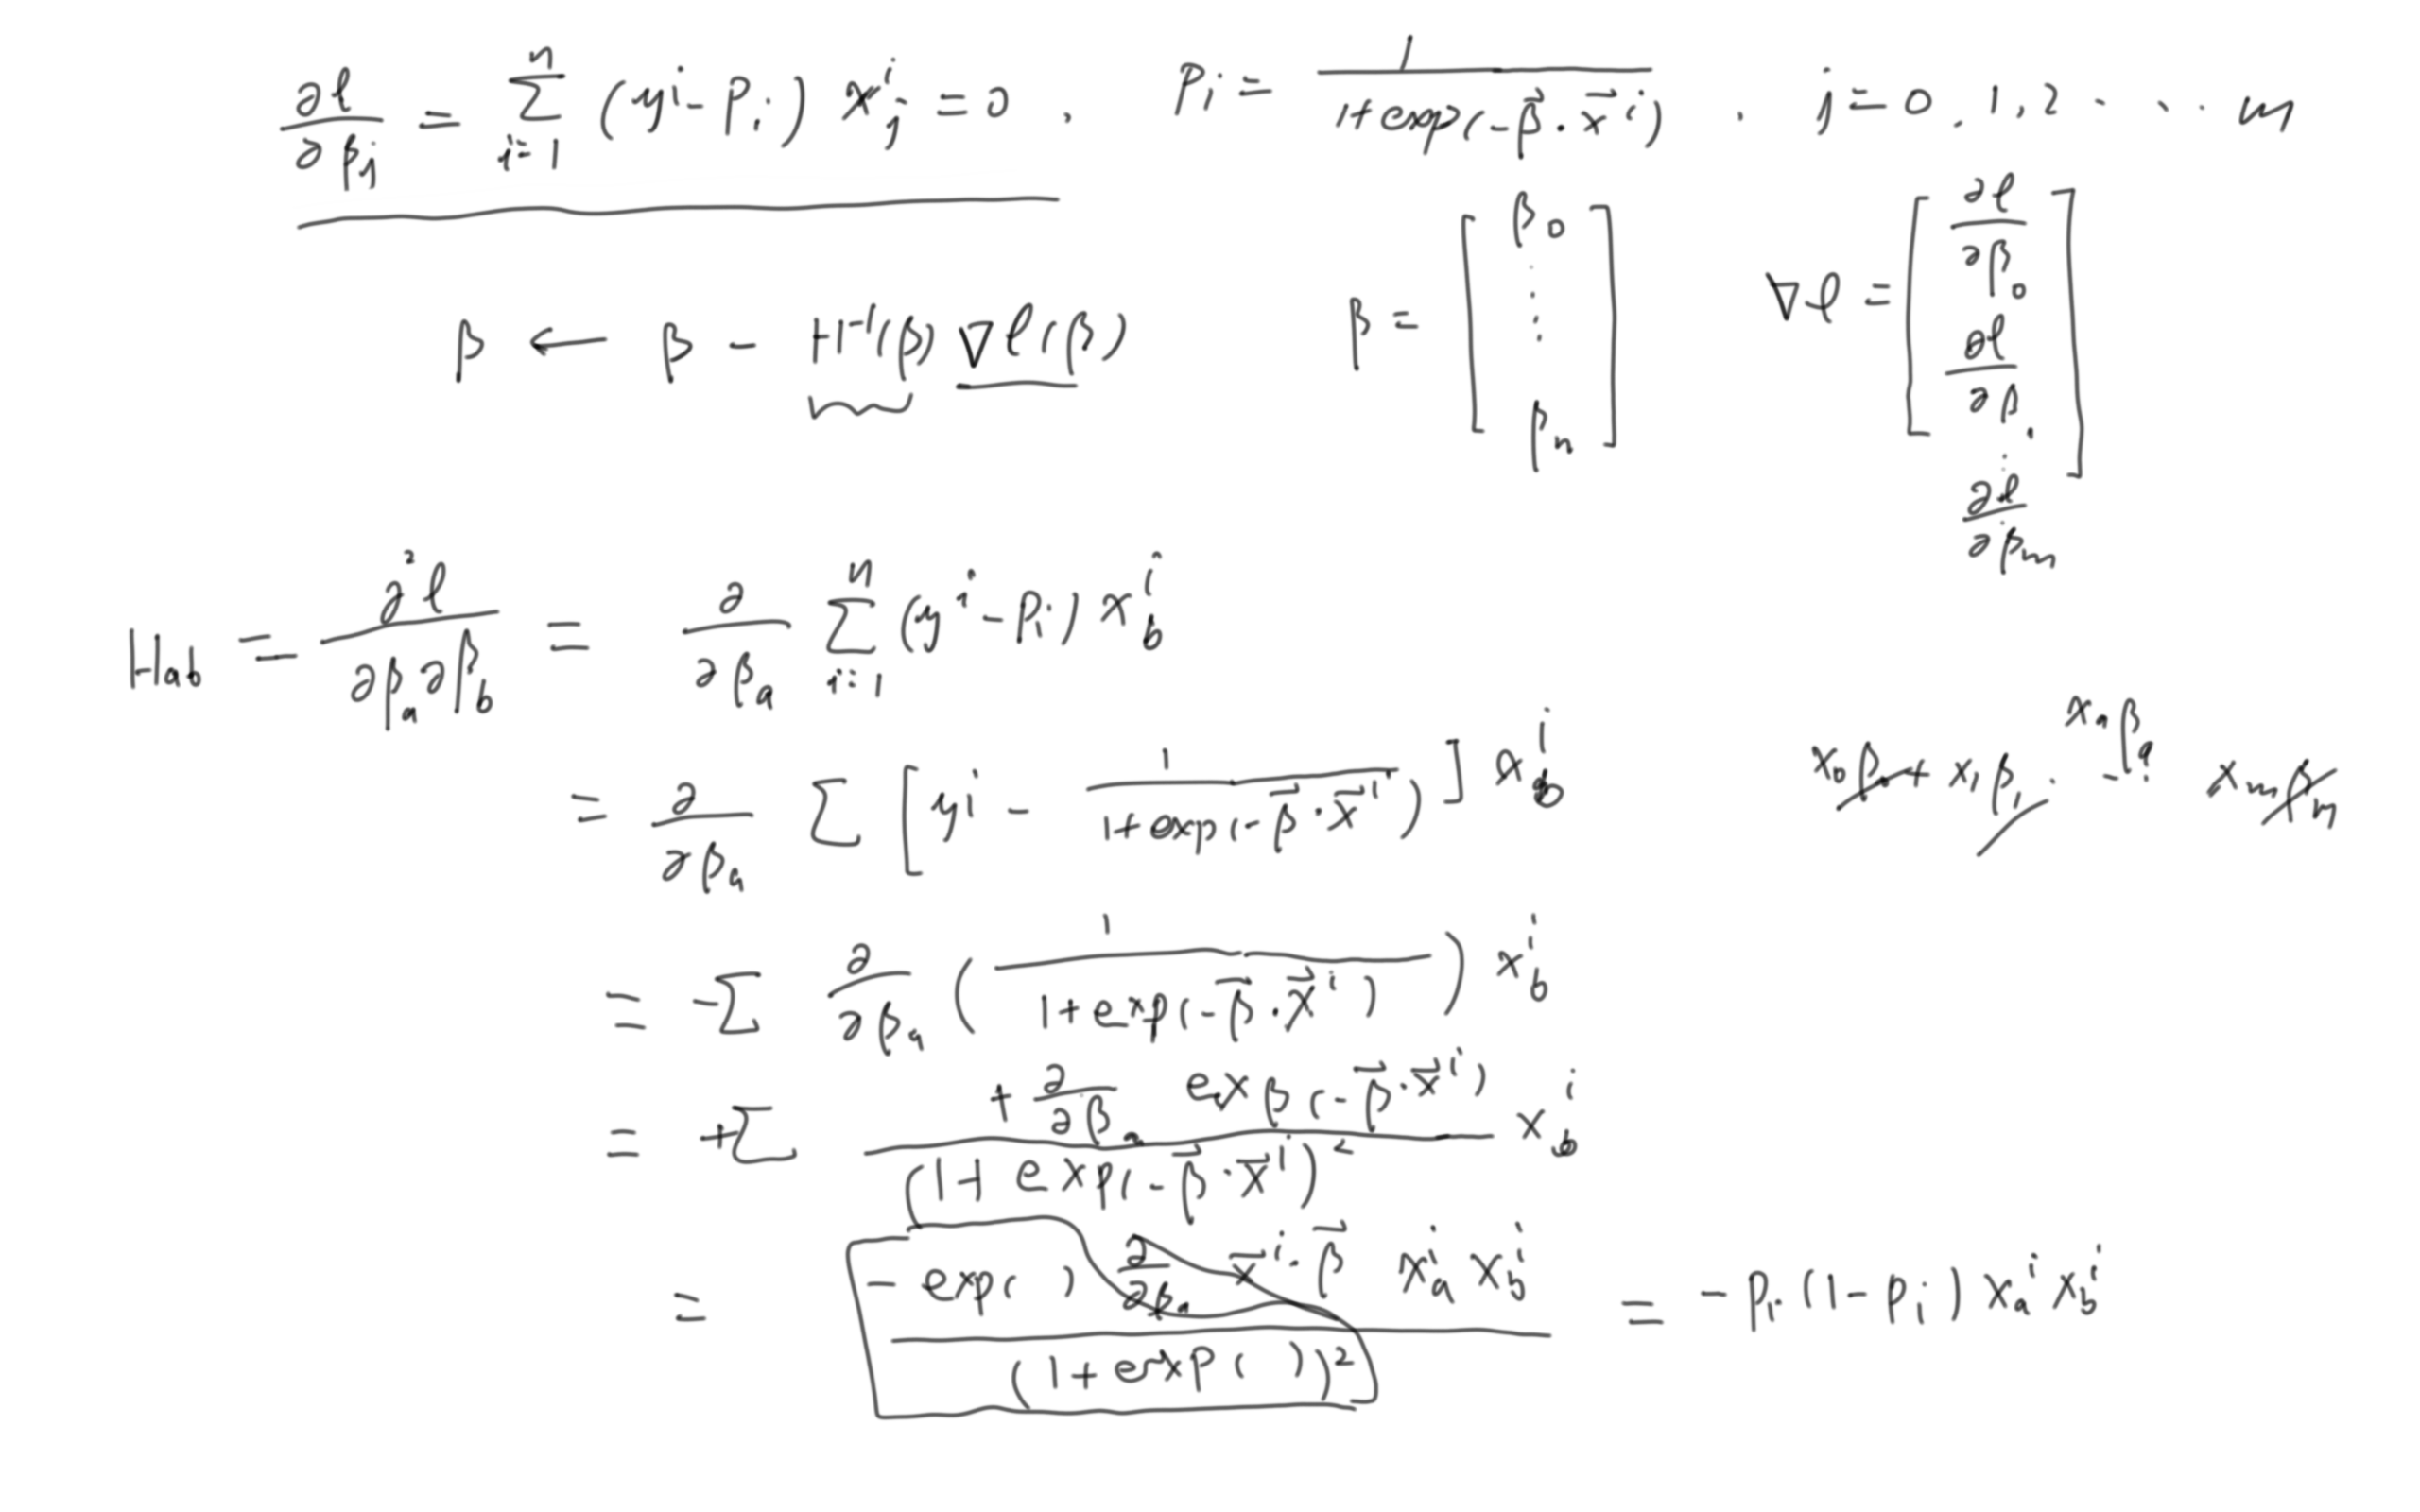 ∂ℓ/∂β_j = Σ_{i=1}^{n} (y^i - P_i) x_j^i = 0 , P_i = 1/(1+exp(-β⃗·x⃗^i)) , j = 0, 1, 2 ... m
β ← β - H^{-1}(β) ∇ℓ(β) β = [β_0 ⋮ β_m] ∇ℓ = [∂ℓ/∂β_0 ∂ℓ/∂β_1 ⋮ ∂ℓ/∂β_m]
H_{ab} = ∂²ℓ/∂β_a∂β_b = ∂/∂β_a Σ_{i=1}^{n} (y^i - P_i) x_b^i
= ∂/∂β_a Σ [y^i - 1/(1+exp(-β⃗·x⃗^i))] x_b^i x_0β_0 + x_1β_1 .. x_aβ_a .. x_mβ_m
= -Σ ∂/∂β_a (1/(1+exp(-β⃗·x⃗^i))) x_b^i
= +Σ +∂/∂β_a exp(-β⃗·x⃗^i)/(1+exp(-β⃗·x⃗^i))² x_b^i
= -exp( ) ∂/∂β_a x⃗^i·β⃗ x_a^i x_b^i/(1+exp( ))² = -P_i(1-P_i) x_a^i x_b^i